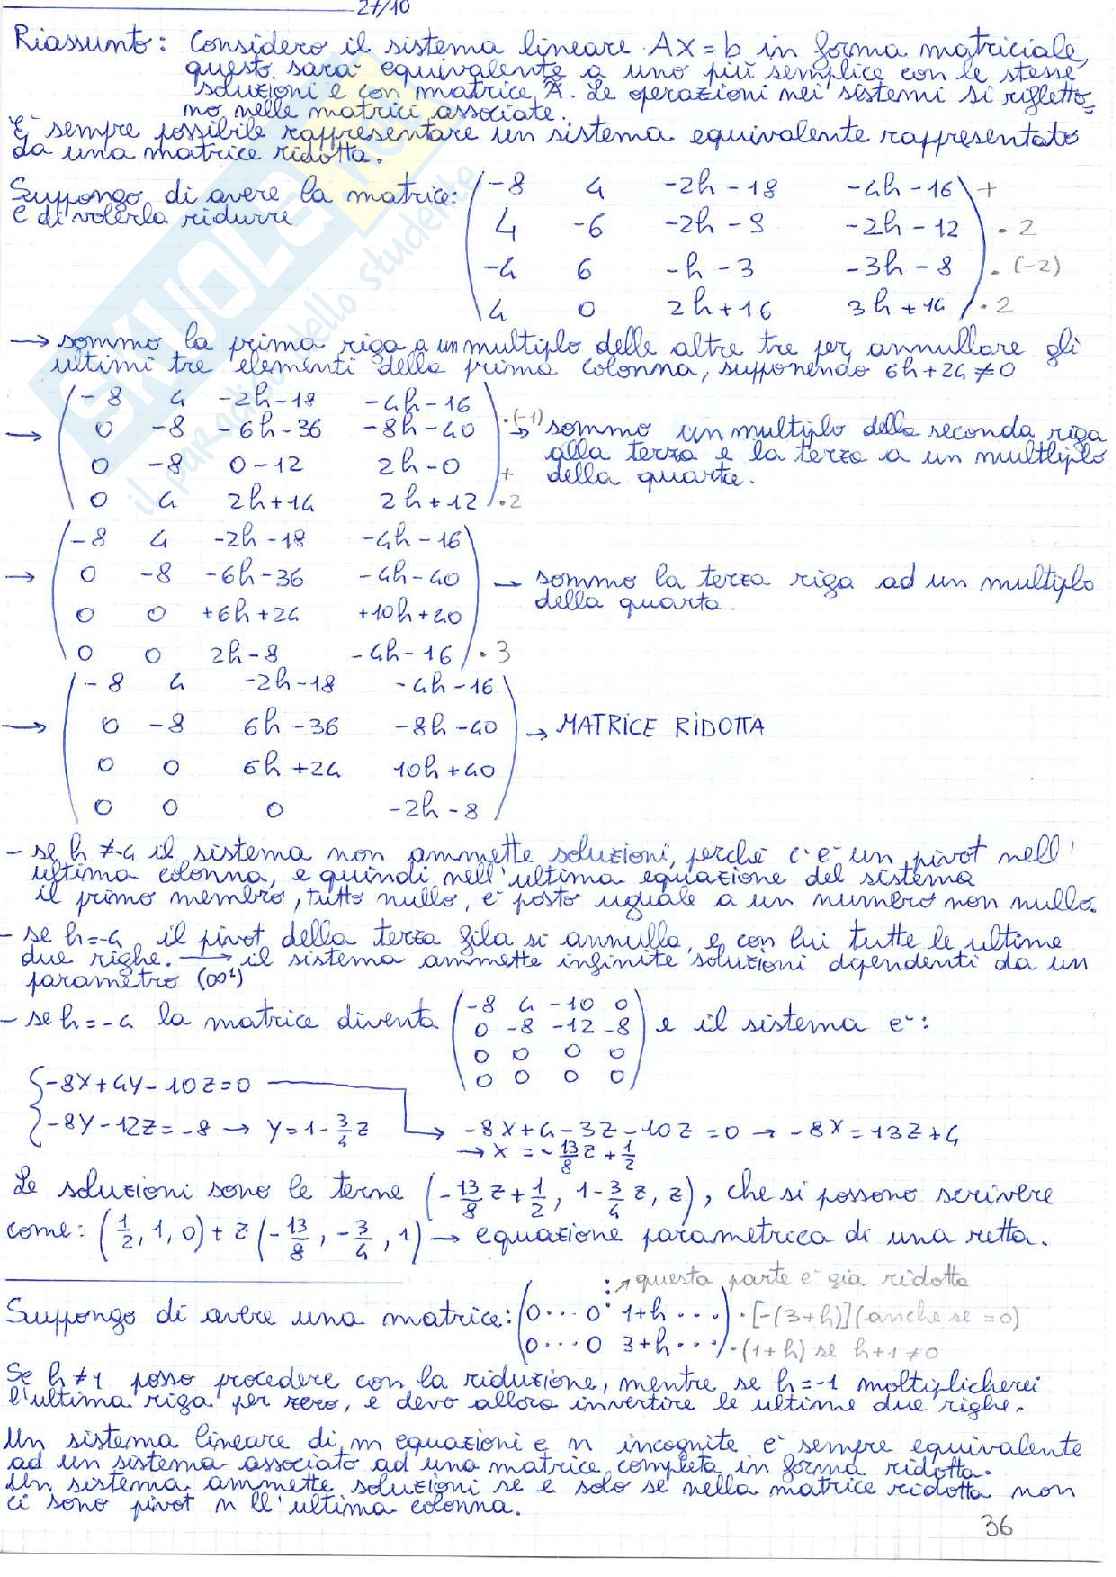 27/10
Riassunto: Considero il sistema lineare AX=b in forma matriciale,
questo sarà equivalente a uno più semplice con le stesse
soluzioni e con matrice Ã. Le operazioni nei sistemi si rifletto-
no nelle matrici associate.
E' sempre possibile rappresentare un sistema equivalente rappresentato
da una matrice ridotta.
Suppongo di avere la matrice: (-8 4 -2h-18 -4h-16) +
e di volerla ridurre
4 -6 -2h-9 -2h-12 · 2
-4 6 -h-3 -3h-8 · (-2)
4 0 2h+16 3h+14 · 2
→ sommo la prima riga a un multiplo delle altre tre per annullare gli
ultimi tre elementi della prima colonna, supponendo 6h+24≠0
-8 4 -2h-18 -4h-16
→ 0 -8 -6h-36 -8h-40 ·(-1) → sommo un multiplo della seconda riga
0 -8 0-12 2h-0 + alla terza e la terza a un multliplo
della quarta.
0 4 2h+14 2h+12 ·2
-8 4 -2h-18 -4h-16
→ 0 -8 -6h-36 -4h-40 → sommo la terza riga ad un multiplo
della quarta.
0 0 +6h+24 +10h+40
0 0 2h-8 -4h-16 · 3
-8 4 -2h-18 -4h-16
→ 0 -8 6h-36 -8h-40 → MATRICE RIDOTTA
0 0 6h+24 10h+40
0 0 0 -2h-8
- se h≠-4 il sistema non ammette soluzioni, perché c'è un pivot nell'
ultima colonna, e quindi nell'ultima equazione del sistema
il primo membro, tutto nullo, è posto uguale a un numero non nullo.
- se h=-4 il pivot della terza fila si annulla, e con lui tutte le ultime
due righe. → il sistema ammette infinite soluzioni dipendenti da un
parametro (∞¹)
- se h=-4 la matrice diventa (-8 4 -10 0) e il sistema e':
0 -8 -12 -8
0 0 0 0
0 0 0 0
{-8X+4Y-10Z=0
-8Y-12Z=-8 → Y=1-3/4 Z → -8X+4-3Z-10Z=0 → -8X=13Z+4
→ X=-13/8 Z+1/2
Le soluzioni sono le terne (-13/8 z+1/2, 1-3/4 z, z), che si possono scrivere
come: (1/2, 1, 0)+z(-13/8, -3/4, 1) → equazione parametrica di una retta.
: ↗ questa parte e' gia ridotta
Suppongo di avere una matrice: (0···0 1+h ···) · [-(3+h)] (anche se =0)
(0···0 3+h ···) · (1+h) se h+1≠0
Se h≠1 posso procedere con la riduzione, mentre se h=-1 moltiplicherei
l'ultima riga per zero, e devo allora invertire le ultime due righe.
Un sistema lineare di m equazioni e n incognite e' sempre equivalente
ad un sistema associato ad una matrice completa in forma ridotta.
Un sistema ammette soluzioni se e solo se nella matrice ridotta non
ci sono pivot n ll'ultima colonna.
36
SKUOLA
il paradiso dello studente